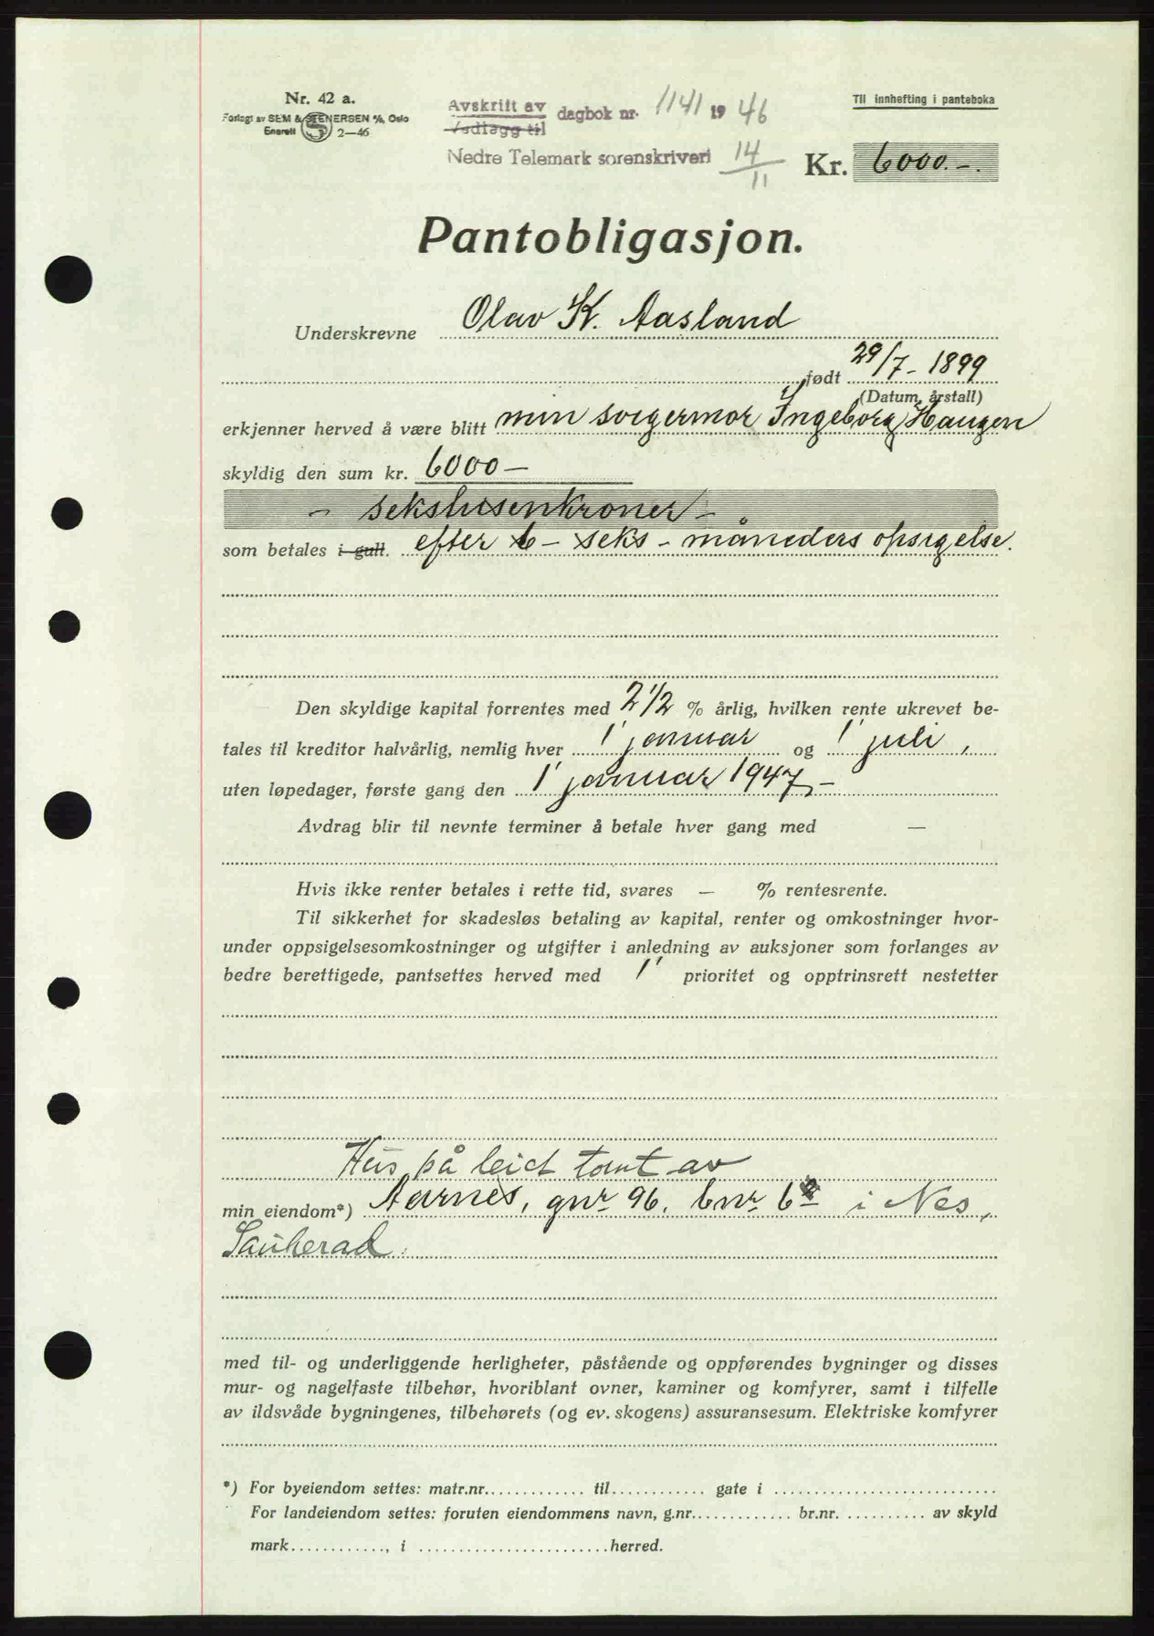 Nr. 42 a.
Forlagt av SEM & STENERSEN A/S, Oslo
Enerett S 2—46
Avskrift av
Vedlegg til
dagbok nr. 1141 1946
Nedre Telemark sorenskriveri 14/11
Til innhefting i panteboka
Kr. 6000.-.
Pantobligasjon.
Underskrevne Olav K. Aasland
født 29/7-1899
(Datum, årstall)
erkjenner herved å være blitt min svigermor Ingeborg Haugen
skyldig den sum kr. 6000 —
- sekstusenkroner -
som betales i gull. efter 6 - seks - måneders opsigelse.
Den skyldige kapital forrentes med 2 1/2 % årlig, hvilken rente ukrevet be-
tales til kreditor halvårlig, nemlig hver 1' januar og 1' juli,
uten løpedager, første gang den 1' januar 1947, -
Avdrag blir til nevnte terminer å betale hver gang med —
Hvis ikke renter betales i rette tid, svares — % rentesrente.
Til sikkerhet for skadesløs betaling av kapital, renter og omkostninger hvor-
under oppsigelsesomkostninger og utgifter i anledning av auksjoner som forlanges av
bedre berettigede, pantsettes herved med 1' prioritet og opptrinsrett nestetter
Hus på leid tomt av
min eiendom*) Aarnes, gnr 96, bnr 6 i Nes,
Sauherad.
med til- og underliggende herligheter, påstående og oppførendes bygninger og disses
mur- og nagelfaste tilbehør, hvoriblant ovner, kaminer og komfyrer, samt i tilfelle
av ildsvåde bygningenes, tilbehørets (og ev. skogens) assuransesum. Elektriske komfyrer
*) For byeiendom settes: matr.nr. til gate i
For landeiendom settes: foruten eiendommens navn, g.nr. br.nr. av skyld
mark , i herred.